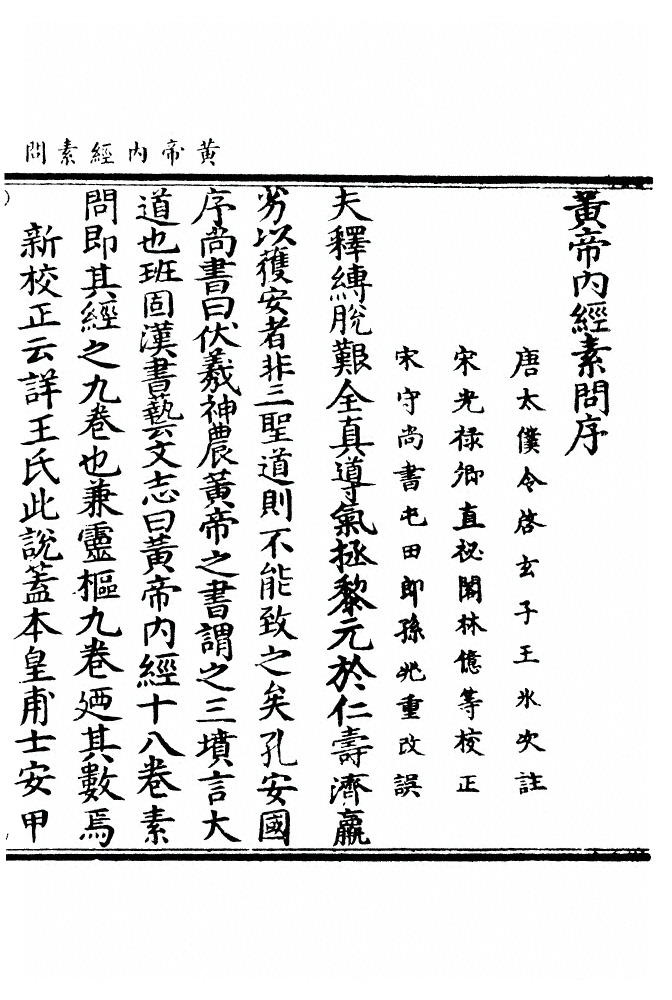 黃帝內經素問
黃帝內經素問序
唐太僕令啓玄子王氷次註
宋光禄卿直祕閣林億等校正
宋守尚書屯田郎孫兆重改誤
夫釋縛脫艱全真導氣拯黎元於仁壽濟羸
劣以獲安者非三聖道則不能致之矣孔安國
序尚書曰伏羲神農黃帝之書謂之三墳言大
道也班固漢書藝文志曰黃帝內經十八卷素
問即其經之九卷也兼靈樞九卷廼其數焉
新校正云詳王氏此說蓋本皇甫士安甲